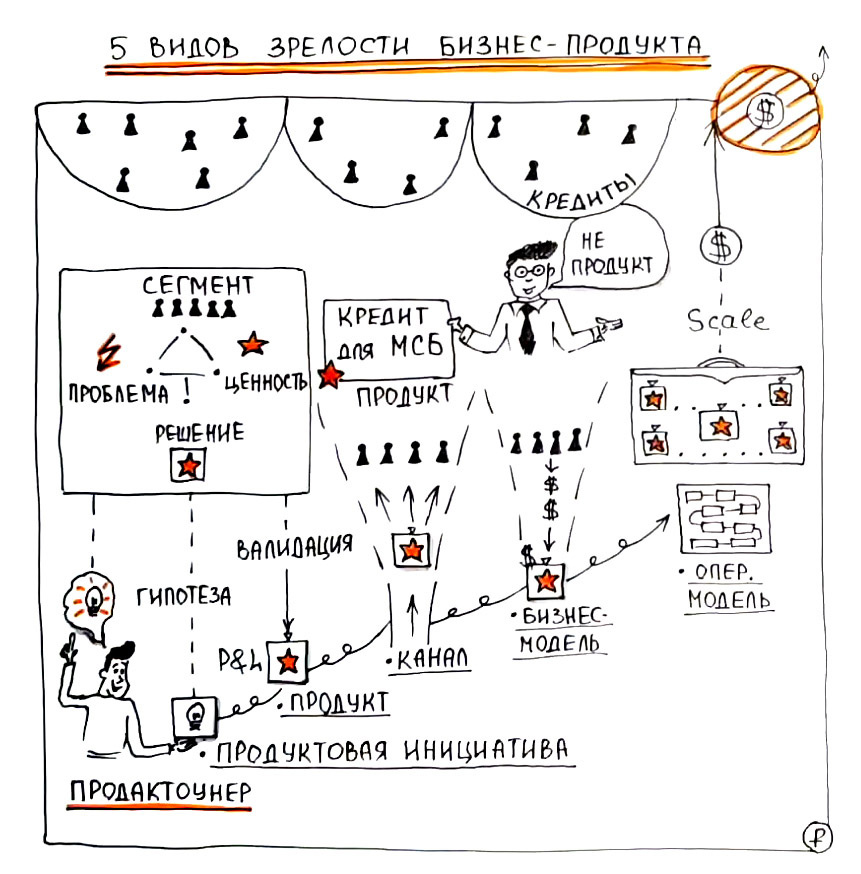 5 ВИДОВ ЗРЕЛОСТИ БИЗНЕС-ПРОДУКТА
$
КРЕДИТЫ
НЕ
ПРОДУКТ
$
СЕГМЕНТ
ПРОБЛЕМА !
ЦЕННОСТЬ
РЕШЕНИЕ
КРЕДИТ
для МСБ
ПРОДУКТ
Scale
$
$
$
ВАЛИДАЦИЯ
ГИПОТЕЗА
P&L
• ПРОДУКТ
• КАНАЛ
• БИЗНЕС-
МОДЕЛЬ
• ОПЕР.
МОДЕЛЬ
• ПРОДУКТОВАЯ ИНИЦИАТИВА
ПРОДАКТОУНЕР